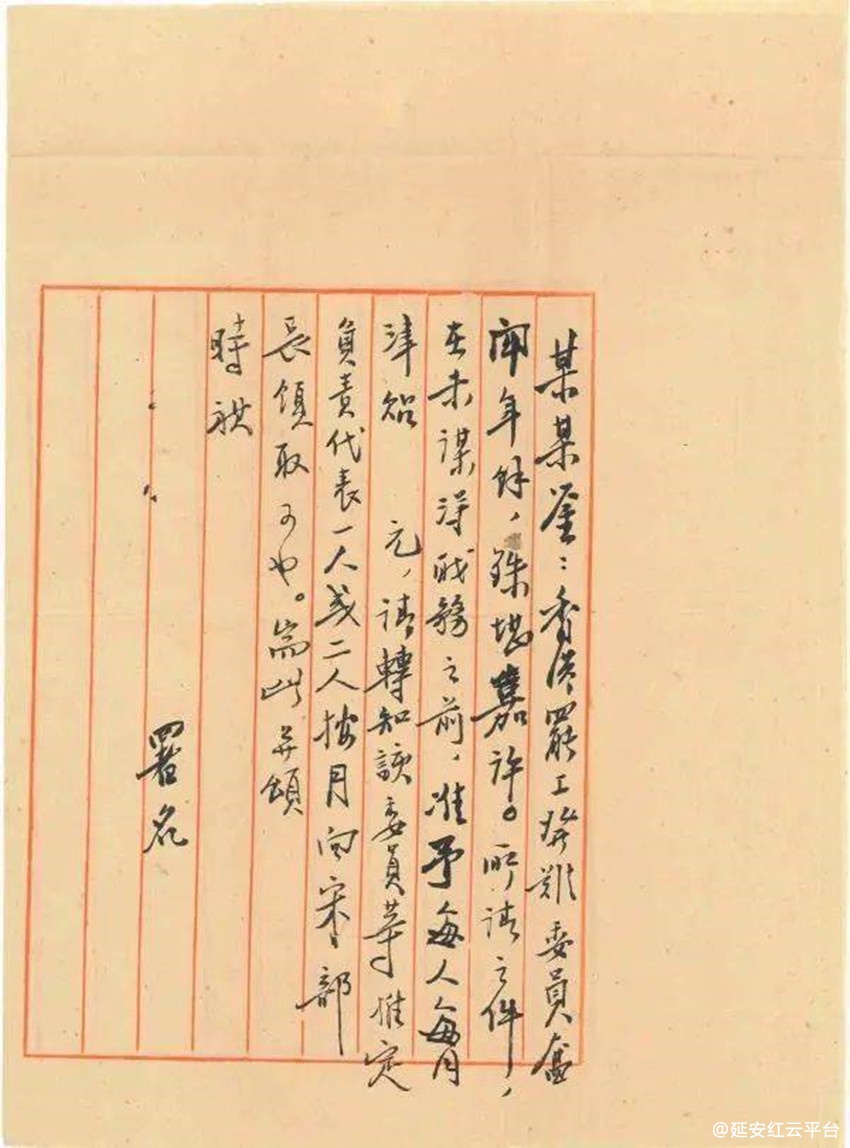 某某鉴：香港罢工骈难委員奮
闘年餘，殊堪嘉许。所请之件，
在未谋得职務之前，准予每人每月
津贴　元，请轉知該委員等推定
負責代表一人或二人按月向宋部
長領取可也。耑此并頌
時祺
署名
@延安红云平台